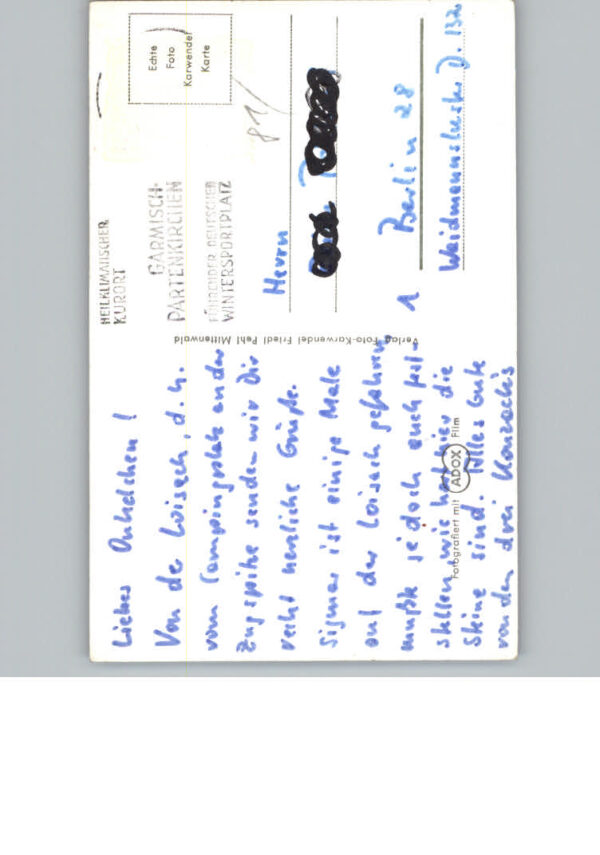 Liebes Onkelchen!
Von der Loisach, d. h.
vom Campingplatz an der
Zugspitze senden wir Dir
recht herzliche Grüße.
Sigmar ist einige Male
auf der Loisach gefahren,
mußte jedoch auch fest-
stellen, wie hart hier die
Steine sind. Alles Gute
von den drei
Fotografiert mit ADOX Film
Verlag Foto-Karwendel Friedl Pehl Mittenwald
HEILKLIMATISCHER
KURORT
GARMISCH-
PARTENKIRCHEN
FÜHRENDER DEUTSCHER
WINTERSPORTPLATZ
Echte
Foto
Karwendel
Karte
81/
Herrn
1 Berlin 28
Weidmannslusterd. 132